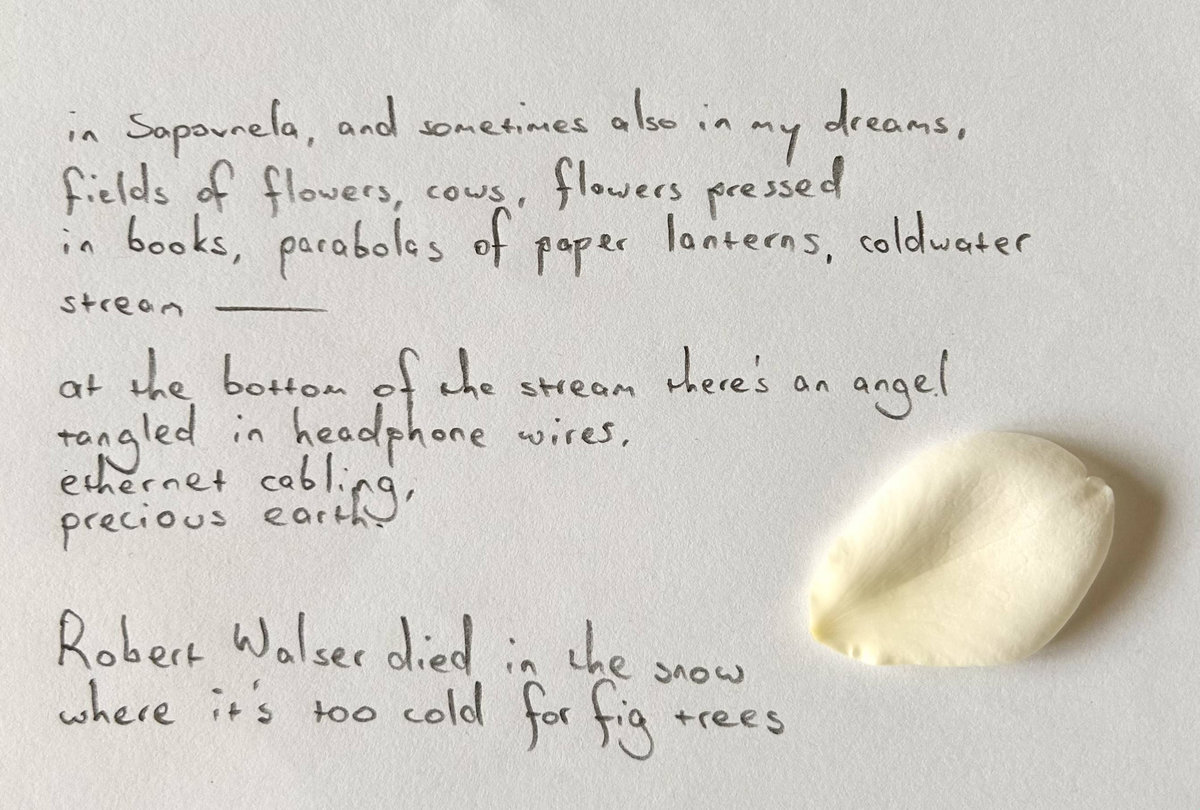 in Sapovnela, and sometimes also in my dreams,
fields of flowers, cows, flowers pressed
in books, parabolas of paper lanterns, coldwater
stream —
at the bottom of the stream there's an angel
tangled in headphone wires,
ethernet cabling,
precious earth.
Robert Walser died in the snow
where it's too cold for fig trees